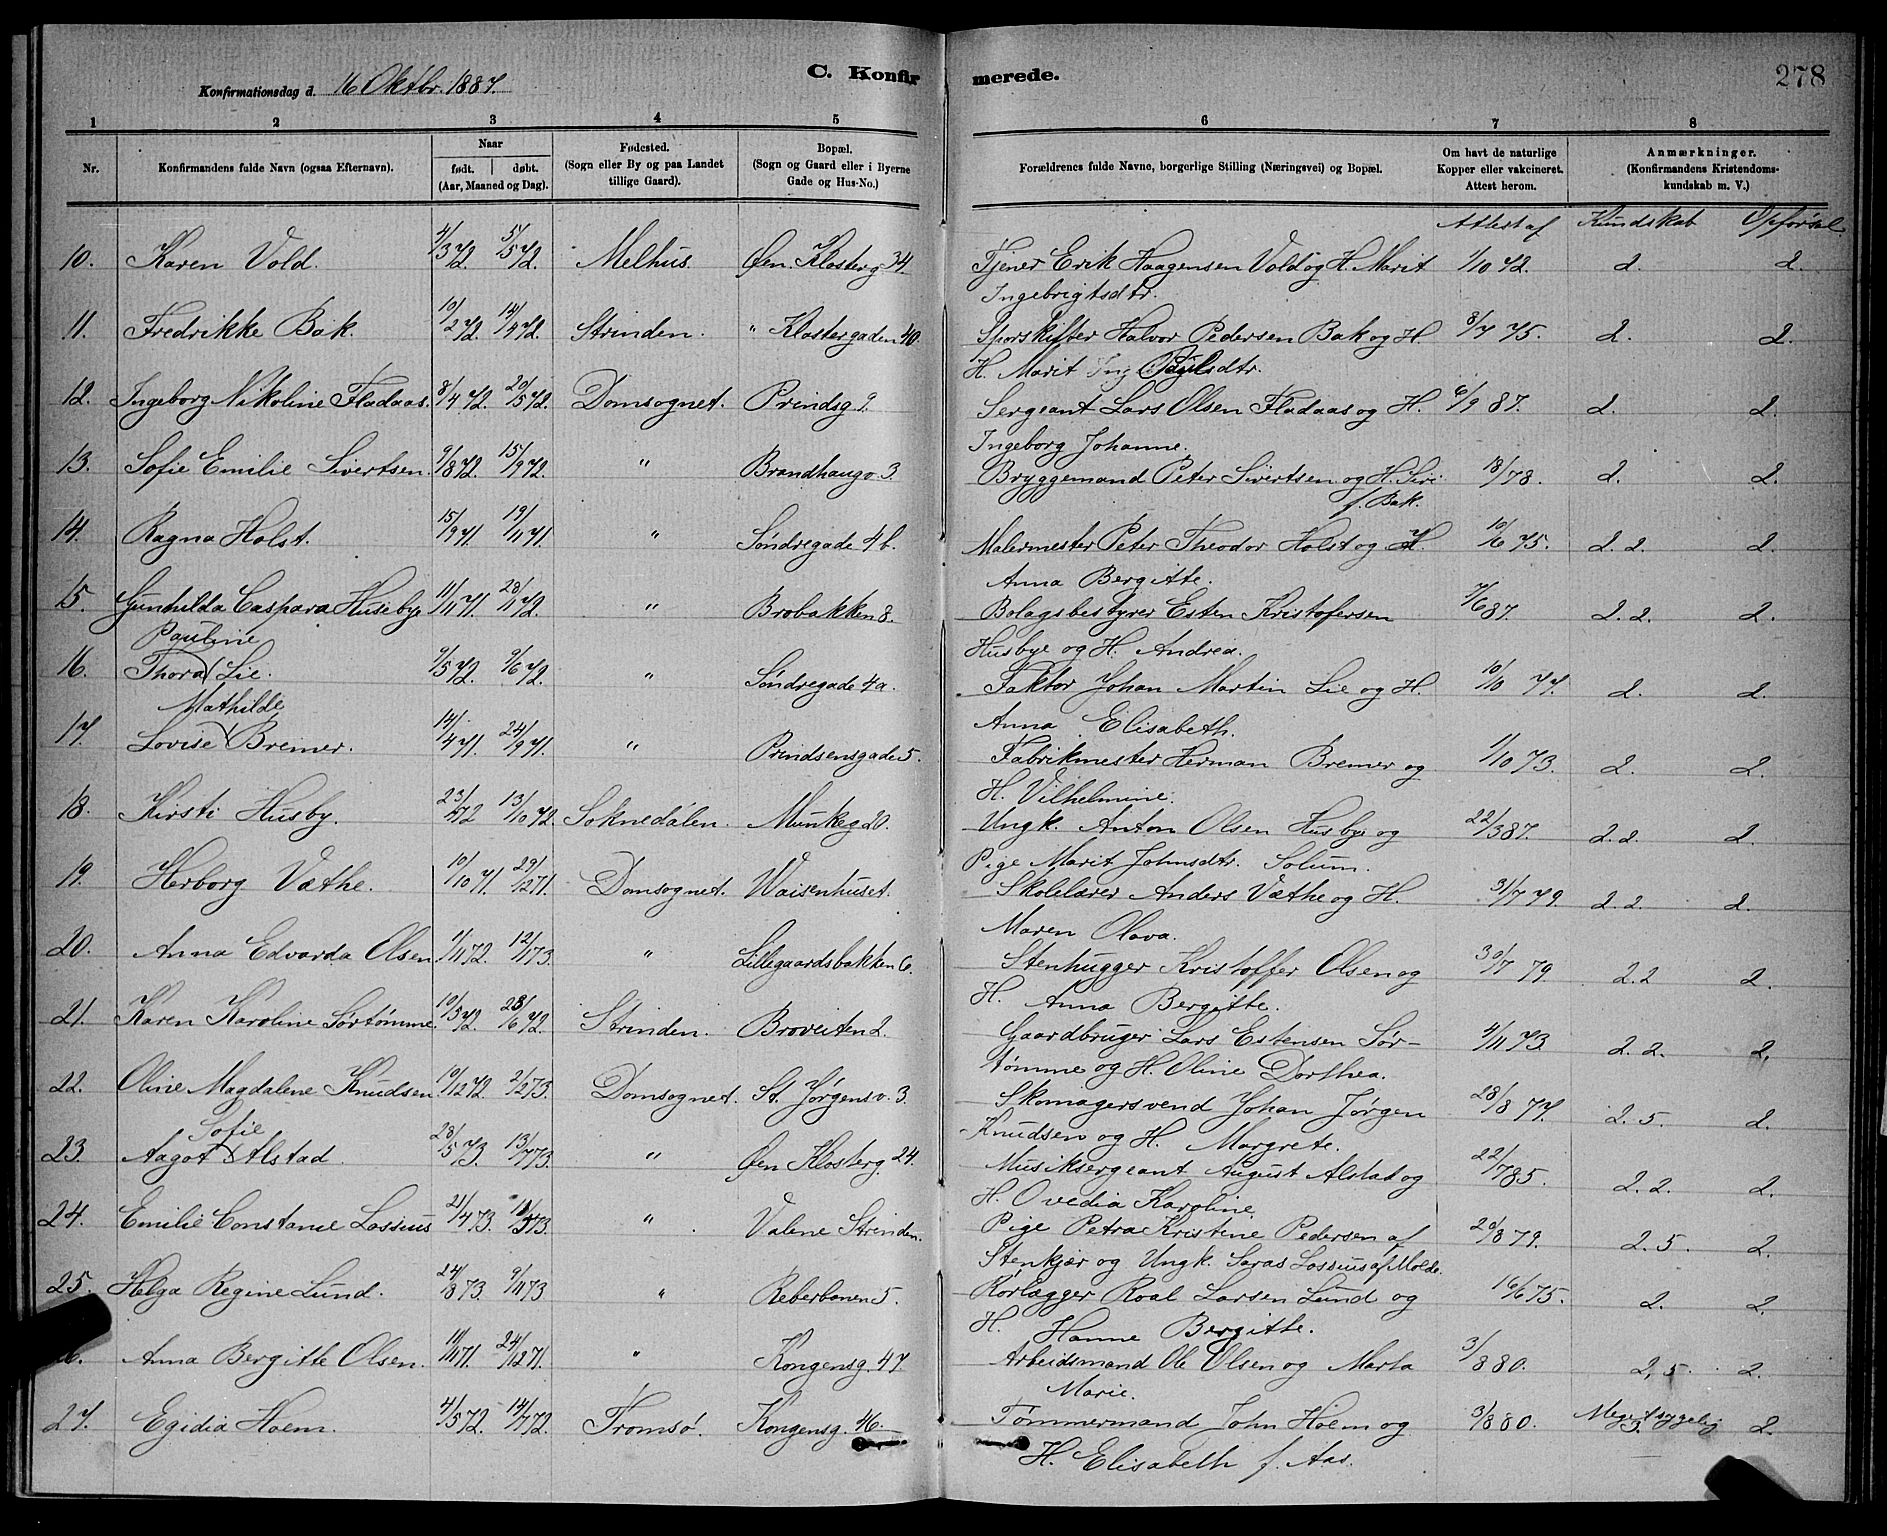 C. Konfirmerede.
278
Konfirmationsdag d. 16 Oktbr. 1887.
1 2 3 4 5 6 7 8
Nr.
Konfirmandens fulde Navn (ogsaa Efternavn).
Naar født. døbt. (Aar, Maaned og Dag).
Fødested. (Sogn eller By og paa Landet tillige Gaard).
Bopæl. (Sogn og Gaard eller i Byerne Gade og Hus-No.)
Forældrenes fulde Navne, borgerlige Stilling (Næringsvei) og Bopæl.
Om havt de naturlige Kopper eller vakcineret. Attest herom.
Anmærkninger. (Konfirmandens Kristendomskundskab m. V.)
Attest af Kundskab Opførsel.
10. Karen Vold. 4/3 72. 5/5 72. Melhus. Øen. Klosterg. 34. Tjener Erik Haagensen Vold og H. Marit 1/10 72. 2. 2.
Ingebrigtsdtr.
11. Fredrikke Bak. 10/2 72. 14/4 72. Strinden. " Klostergaden 40. Sporskifter Halvor Pedersen Bak og H. 8/7 75. 2. 2.
H. Marit Pulsdtr.
12. Ingeborg Nikoline Fladaas. 8/4 72. 20/5 72. Domsognet. Prindsg 9. Sergeant Lars Olsen Fladaas og H. 6/9 87. 2. 2.
Ingeborg Johanne.
13. Sofie Emilie Sivertsen. 9/8 72. 15/9 72. " Brandhaugv. 3. Bryggemand Peter Sivertsen og H. Siri 18/78. 2. 2.
f. Bak.
14. Ragna Holst. 15/9 71. 19/11 71. " Søndregade 4b. Malermester Peter Theodor Holst og H. 10/6 75. 2. 2. 2.
Anna Bergitte.
15. Gunhilda Caspara Husebye 11/11 71. 28/1 72. " Brobakken 8. Bolagsbestyrer Esten Kristofersen 7/6 87. 2. 2. 2.
Husbye og H. Andrea.
Pauline
16. Thora Lie. 9/5 72. 9/6 72. " Søndregade 4a. Faktor Johan Martin Lie og H. 10/10 77. 2. 2.
Anna Elisabeth.
Mathilde
17. Lovise Bremer. 14/4 71. 24/9 71. " Prindsensgade 5. Fabrikmester Herman Bremer og 1/10 73. 2. 2.
H. Vilhelmine.
18. Kirsti Husby. 23/4 72 13/10 72. Soknedalen. Munkeg 20. Ungk. Anton Olsen Husby og 22/3 87. 2. 2. 2.
Pige Marit Johnsdtr. Solum.
19. Herborg Væthe. 10/10 71. 29/12 71. Domsognet. Waisenhuset. Skolelærer Anders Væthe og H. 31/7 79. 2. 2. 2.
Maren Olava.
20. Anna Edvarda Olsen 1/11 72. 12/1 73. " Lillegaardsbakken 6. Stenhugger Kristoffer Olsen og 30/7 79. 2. 2 2.
H. Anna Bergitte.
21. Karen Karoline Sørtømme. 10/5 72. 23/6 72. Strinden. Broveiten 2. Gaardbruger Lars Estensen Sør- 4/11 73. 2. 2. 2.
tømme og H. Oline Dorthea.
22. Oline Magdalene Knudsen 10/12 72. 2/2 73. Domsognet. St. Jørgensv. 3. Skomagersvend Johan Jørgen 28/8 77. 2. 5. 2.
Knudsen og H. Margrete.
Sofie
23. Aagot Alstad. 28/5 73. 13/7 73. " Øen Klosterg. 24. Musiksergeant August Alstad og 22/7 85. 2. 2. 2.
H. Ovedia Karoline
24. Emilie Constance Lossius 21/4 73. 73. " Valene Strinden. Pige Petra Kristine Pedersen af 20/8 79. 2. 5. 2.
Stenkjær og Ungk. Saras Lossius af Molde.
25. Helga Regine Lund. 24/8 73. 9/11 73 " Reberbanen 5. Rørlægger Roal Larsen Lund og 16/6 75. 2. 2.
H. Hanne Bergitte.
26. Anna Bergitte Olsen. 11/11 71. 24/12 71. " Kongensg. 47. Arbeidsmand Ole Olsen og Marta 3/8 80. 2, 5. 2.
Marie.
27. Egidia Hoem. 4/5 72. 14/7 72. Tromsø. Kongensg. 46. Tømmermand John Hoem og 3/8 80. Meget sygelig 3. 2.
H. Elisabeth f. Aas.